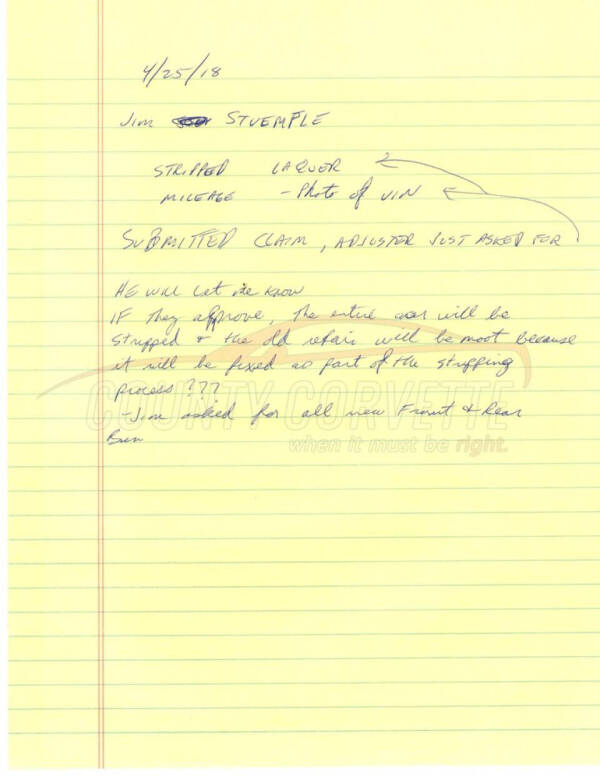 4/25/18
Jim STUEMPLE
STRIPPED LAQUER
MILEAGE - Photo of VIN
SUBMITTED CLAIM, ADJUSTER JUST ASKED FOR
HE WILL Let me know
IF they approve, the entire car will be
stripped & the old repair will be moot because
it will be fixed as part of the stripping
process ???
COUNTY CORVETTE
- Jim asked for all new Front & Rear
when it must be right.